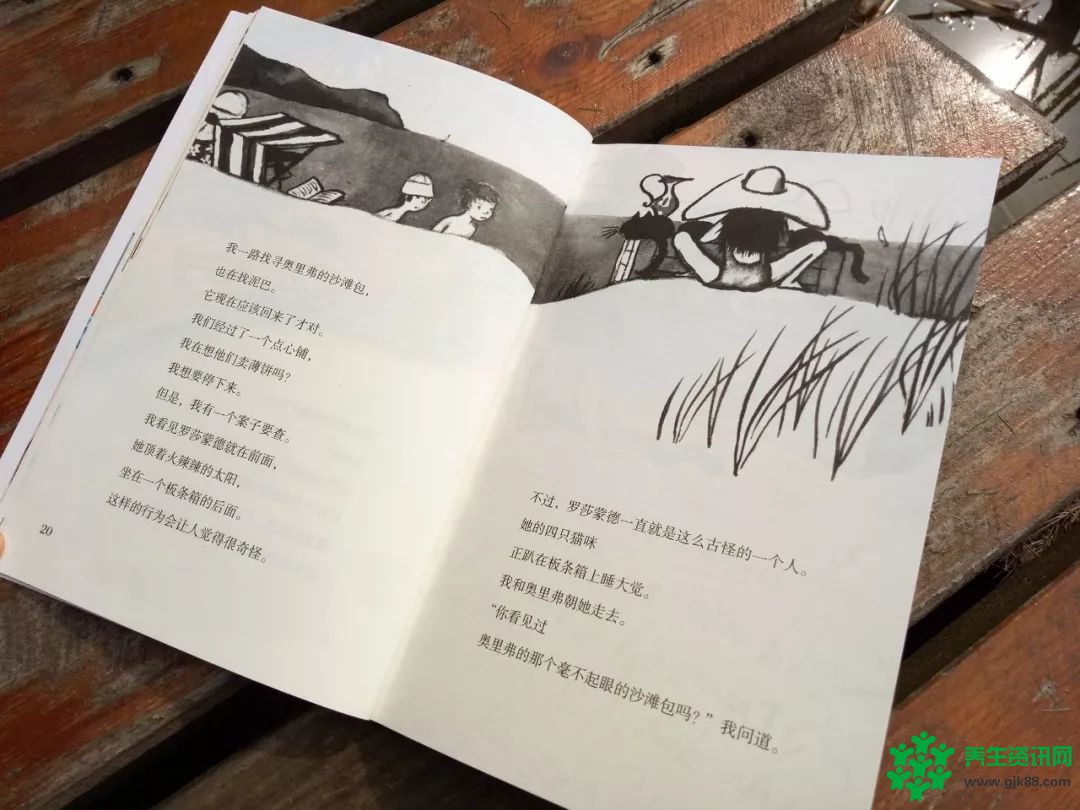 我一路找寻奥里弗的沙滩包，
也在找泥巴。
它现在应该回来了才对。
我们经过了一个点心铺，
我在想他们卖薄饼吗？
我想要停下来。
但是，我有一个案子要查。
我看见罗莎蒙德就在前面，
她顶着火辣辣的太阳，
坐在一个板条箱的后面。
这样的行为会让人觉得很奇怪。
20
不过，罗莎蒙德一直就是这么古怪的一个人。
她的四只猫咪
正趴在板条箱上睡大觉。
我和奥里弗朝她走去。
“你看见过
奥里弗的那个毫不起眼的沙滩包吗？”我问道。
养生资讯网
www.gjk88.com